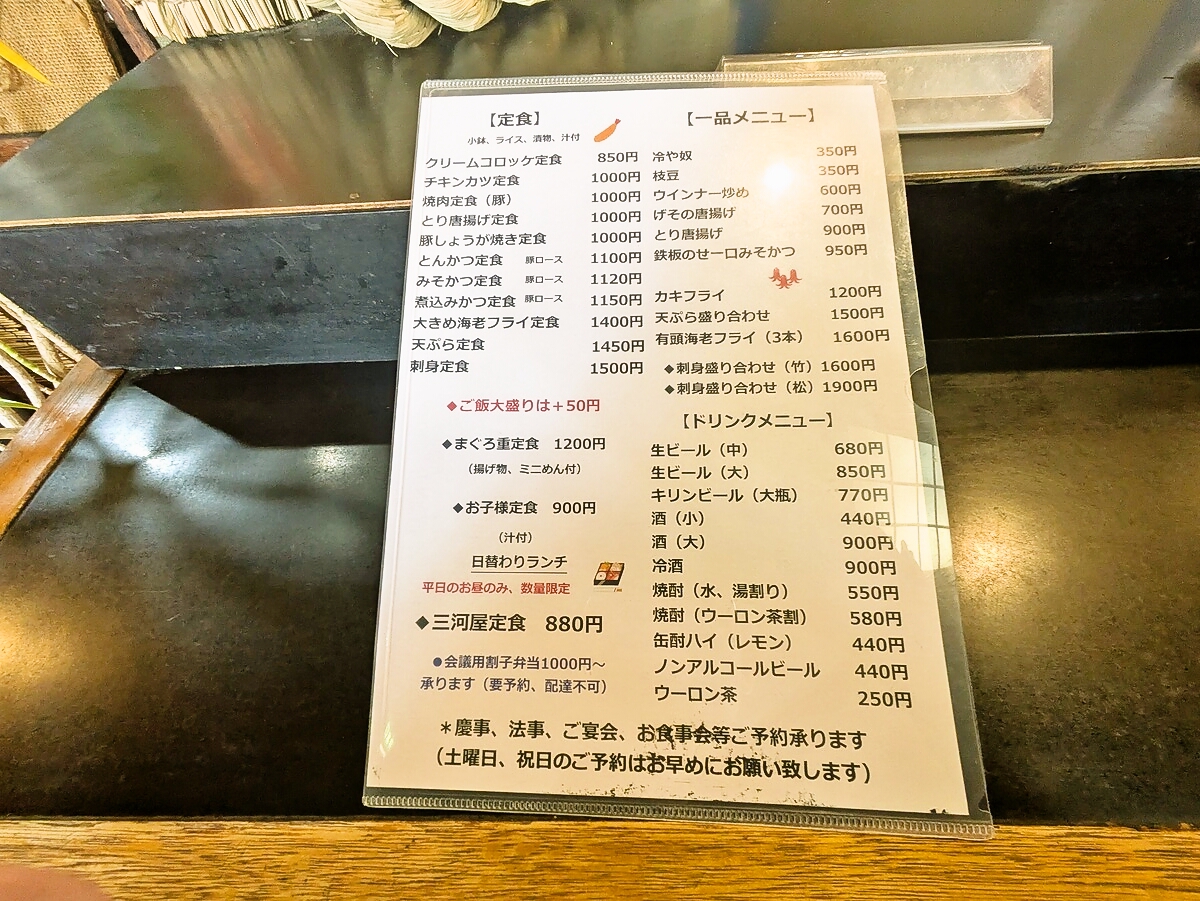 【定食】
小鉢、ライス、漬物、汁付
クリームコロッケ定食 850円
チキンカツ定食 1000円
焼肉定食（豚） 1000円
とり唐揚げ定食 1000円
豚しょうが焼き定食 1000円
とんかつ定食 豚ロース 1100円
みそかつ定食 豚ロース 1120円
煮込みかつ定食 豚ロース 1150円
大きめ海老フライ定食 1400円
天ぷら定食 1450円
刺身定食 1500円
◆ご飯大盛りは＋50円
◆まぐろ重定食 1200円
（揚げ物、ミニめん付）
◆お子様定食 900円
（汁付）
日替わりランチ
平日のお昼のみ、数量限定
◆三河屋定食 880円
●会議用割子弁当1000円～
承ります（要予約、配達不可）
【一品メニュー】
冷や奴 350円
枝豆 350円
ウインナー炒め 600円
げその唐揚げ 700円
とり唐揚げ 900円
鉄板のせ一口みそかつ 950円
カキフライ 1200円
天ぷら盛り合わせ 1500円
有頭海老フライ（3本） 1600円
◆刺身盛り合わせ（竹）1600円
◆刺身盛り合わせ（松）1900円
【ドリンクメニュー】
生ビール（中） 680円
生ビール（大） 850円
キリンビール（大瓶） 770円
酒（小） 440円
酒（大） 900円
冷酒 900円
焼酎（水、湯割り） 550円
焼酎（ウーロン茶割） 580円
缶酎ハイ（レモン） 440円
ノンアルコールビール 440円
ウーロン茶 250円
＊慶事、法事、ご宴会、お食事会等ご予約承ります
（土曜日、祝日のご予約はお早めにお願い致します）